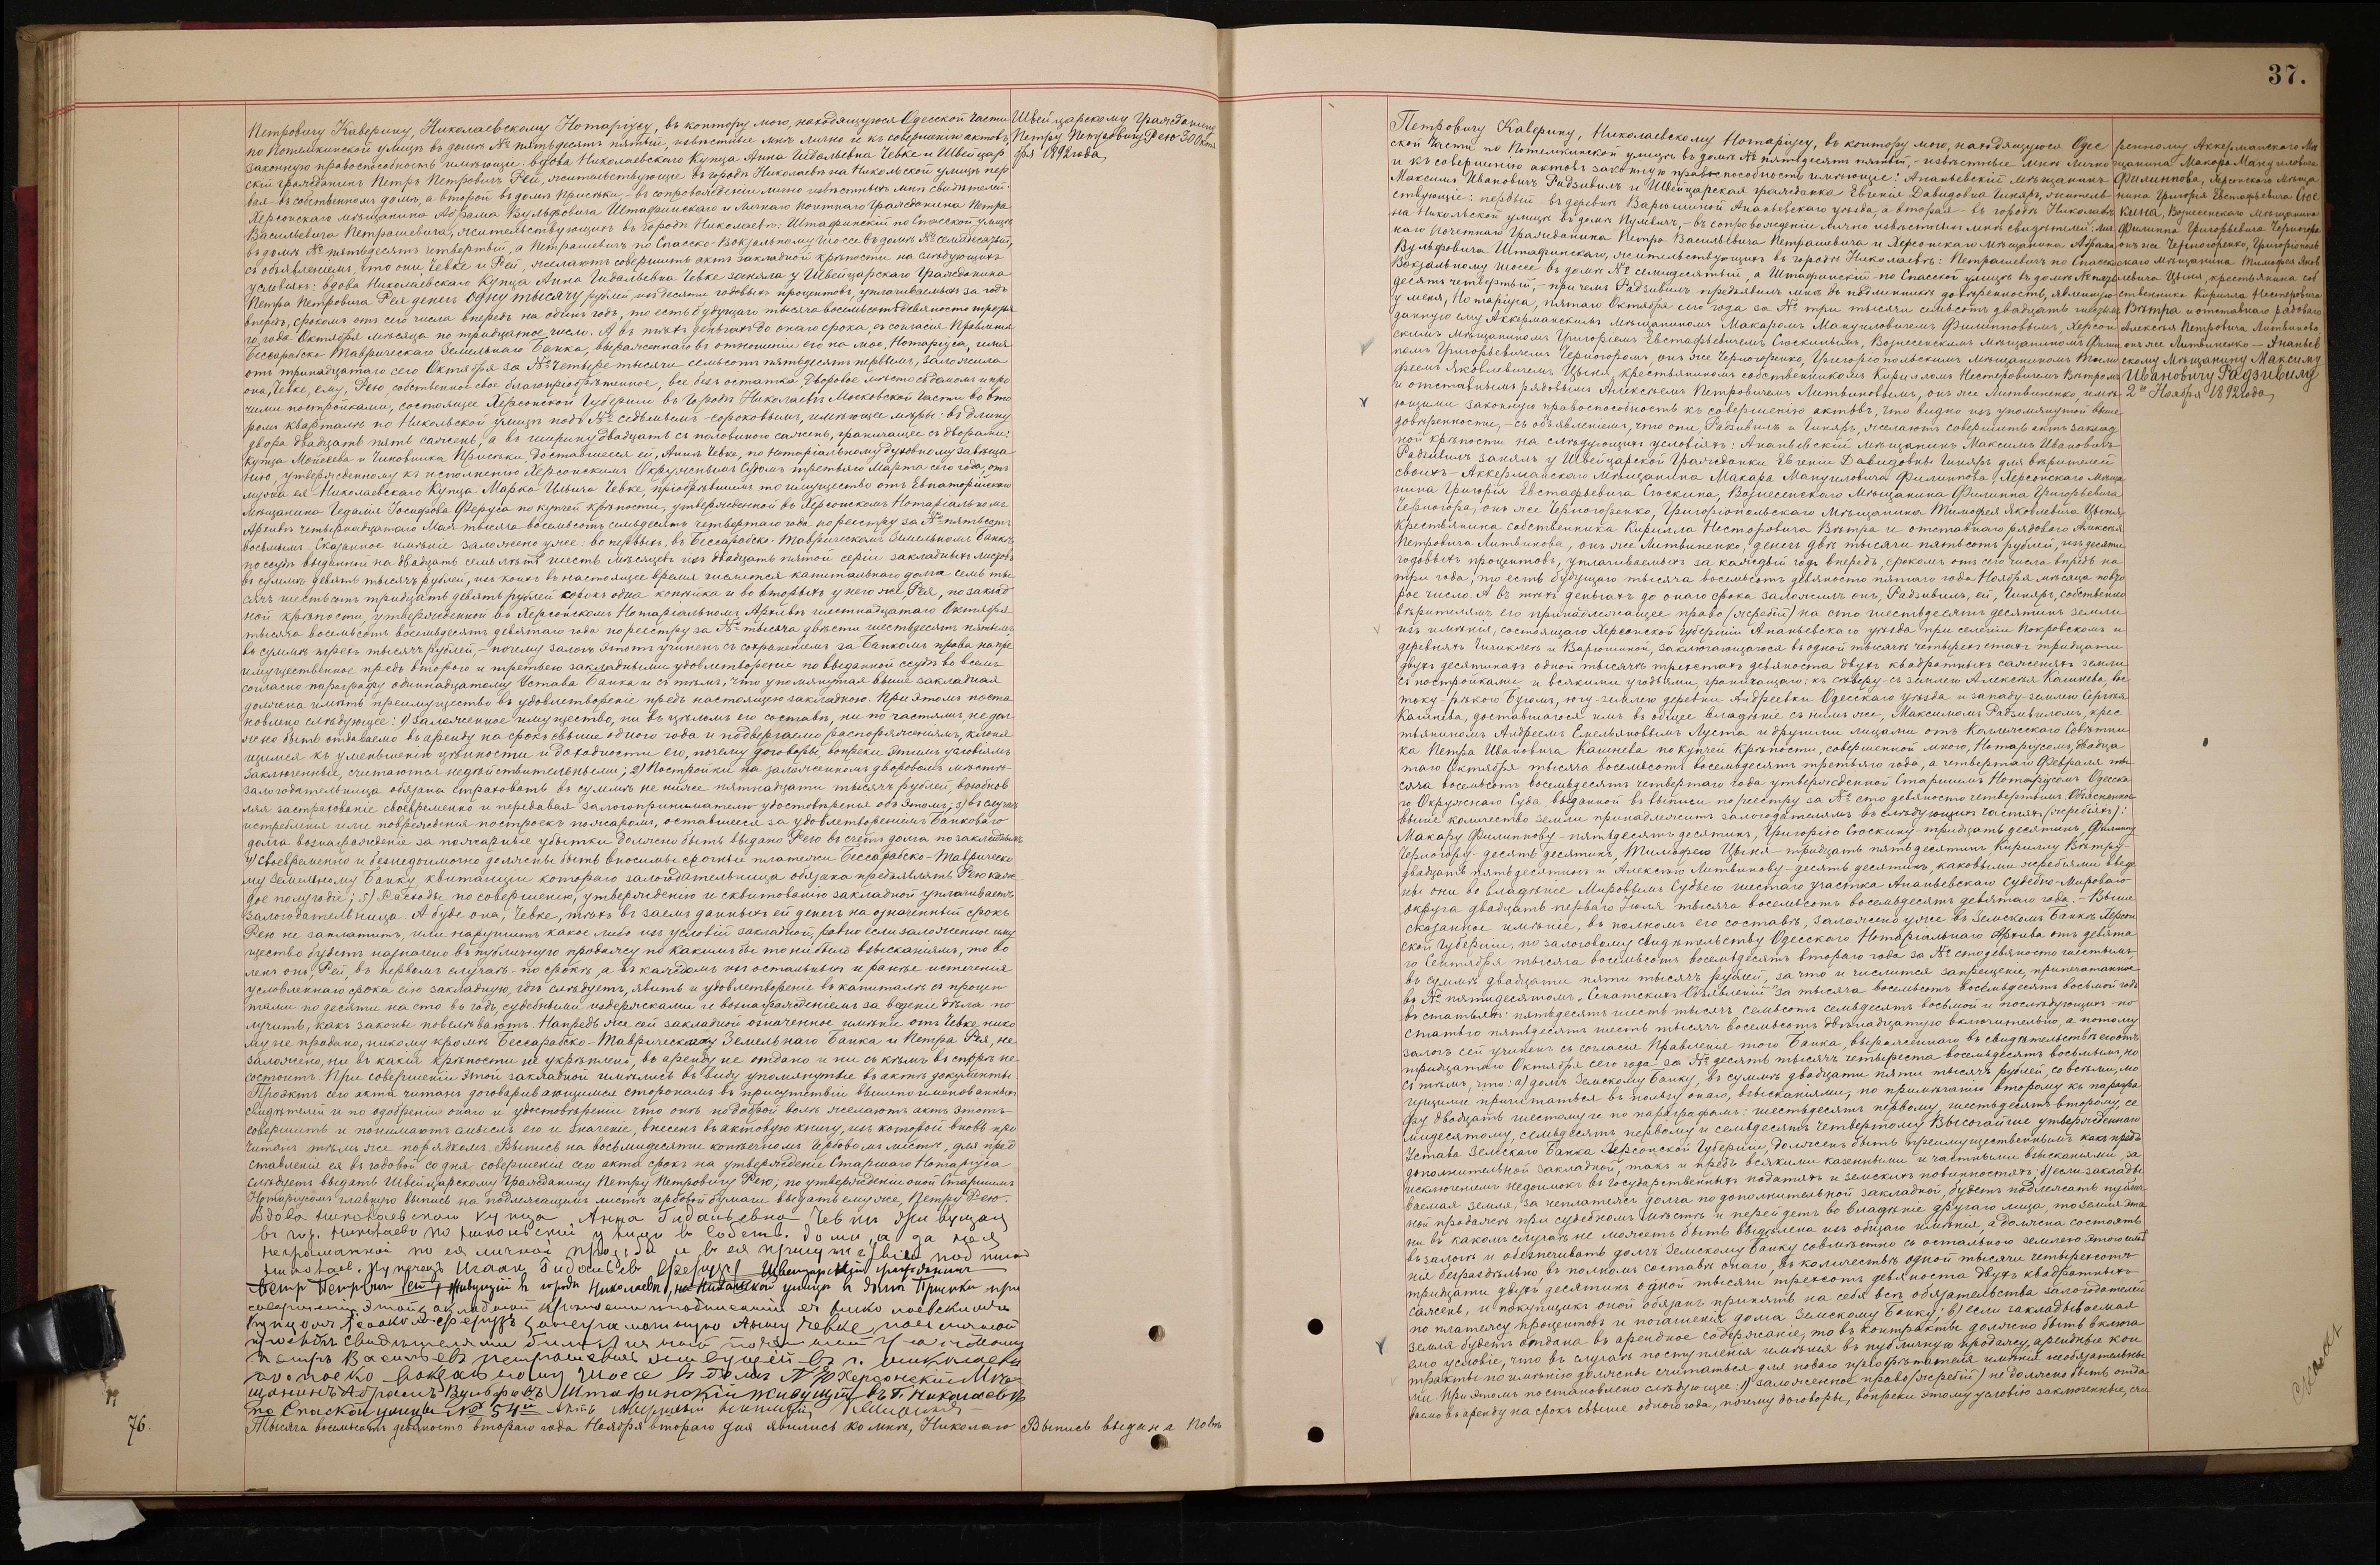 37.
Петровичу Каверину, Николаевскому Нотаріусу, въ контору мою, находящуюся Одесской части
по Потемкинской улицѣ въ домѣ № пятьдесятъ пятый, извѣстные мнѣ лично и къ совершенію актовъ
законную правоспособность имѣющіе: вдова Николаевскаго Купца Анна Гидальевна Чевке и Швейцар
скій гражданинъ Петръ Петровичъ Рей, жительствующіе въ городѣ Николаевѣ на Никольской улицѣ пер
вая въ собственномъ домѣ, а второй въ домѣ Присѣки, въ сопровожденіи лично извѣстныхъ мнѣ свидѣтелей:
Херсонскаго мѣщанина Абрама Вульфовича Штафинскаго и Личнаго Почетнаго Гражданина Петра
Васильевича Петрашевича, жительствующихъ въ городѣ Николаевѣ: Штафинскій по Спасской улицѣ
въ домѣ № пятьдесятъ четвертый, а Петрашевичъ по Спасско-Вокзальному шоссе въ домѣ № семидесятый,
съ объявленіемъ, что они, Чевке и Рей, желаютъ совершить актъ закладной крѣпости на слѣдующихъ
условіяхъ: вдова Николаевскаго Купца Анна Гидальевна Чевке заняла у Швейцарскаго Гражданина
Петра Петровича Рея денегъ одну тысячу рублей, изъ десяти годовыхъ процентовъ, уплачиваемыхъ за годъ
впередъ, срокомъ отъ сего числа впредь на одинъ годъ, то есть будущаго тысяча восемьсотъ девяносто третья
го года Октября мѣсяца по тридцатое число. А въ тѣхъ деньгахъ до онаго срока, съ согласія Правленія
Бессарабско-Таврическаго Земельнаго Банка, выраженнаго въ отношеніи его на мое, Нотаріуса, имя
отъ тринадцатаго сего Октября за № четыре тысячи семьсотъ пятьдесятъ первымъ, заложила
она, Чевке, ему, Рею, собственное свое благопріобрѣтенное, все безъ остатка, дворовое мѣсто съ домомъ и про
чими постройками, состоящее Херсонской Губерніи въ городѣ Николаевѣ Московской части во вто
ромъ кварталѣ по Никольской улицѣ подъ № седьмымъ-сороковымъ, имѣющее мѣры: въ длину
двора двадцать пять сажень, а въ ширину двадцать съ половиною сажень, граничащее съ дворами:
купца Мойсеева и Чиновника Присѣки, доставшееся ей, Аннѣ Чевке, по нотаріальному духовному завѣща
нію, утвержденному къ исполненію Херсонскимъ Окружнымъ Судомъ третьяго Марта сего года, отъ
мужа ея Николаевскаго Купца Марка Ильича Чевке, пріобрѣвшимъ то имущество отъ Евпаторійскаго
Мѣщанина Гедаля Іосифова Феруса по купчей крѣпости, утвержденной въ Херсонскомъ Нотаріальномъ
Архивѣ четырнадцатаго Мая тысяча восемьсотъ семьдесятъ четвертаго года по реестру за № пятьсотъ
восьмымъ. Сказанное имѣніе заложено уже: во первыхъ, въ Бессарабско-Таврическомъ Земельномъ Банкѣ
по ссудѣ выданной на двадцать семь лѣтъ шесть мѣсяцевъ изъ двадцать пятой серіи закладныхъ листовъ
въ суммѣ девять тысячъ рублей, изъ коихъ въ настоящее время числится капитальнаго долга семь ты
сячъ шестьсотъ тридцать девять рублей сорокъ одна копѣйка и во вторыхъ у него же, Рея, по заклад
ной крѣпости, утвержденной въ Херсонскомъ Нотаріальномъ Архивѣ шестнадцатаго Октября
тысяча восемьсотъ восемьдесятъ девятаго года по реестру за № тысяча двѣсти шестьдесятъ пятымъ
въ суммѣ трехъ тысячъ рублей, почему залогъ этотъ учиненъ съ сохраненіемъ за Банкомъ права на пре
имущественное предъ второю и третьею закладными удовлетвореніе по выданной ссудѣ во всемъ
согласно параграфу одиннадцатому Устава Банка и съ тѣмъ, что упомянутая выше закладная
должна имѣть преимущество въ удовлетвореніе предъ настоящею закладною. При этомъ поста
новлено слѣдующее: 1) Заложенное имущество, ни въ цѣломъ его составѣ, ни по частямъ, не дол
жно быть отдаваемо въ аренду на срокъ свыше одного года и подвергаемо распоряженіямъ, клоня
щимся къ уменьшенію цѣнности и доходности его, почему договоры, вопреки этимъ условіямъ
заключенные, считаются недѣйствительными; 2) Постройки на заложенномъ дворовомъ мѣстѣ
залогодательница обязана страховать въ суммѣ не ниже пятнадцати тысячъ рублей, возобнов
ляя застрахованіе своевременно и передавая залогопринимателю удостовѣренія объ этомъ; 3) въ случаѣ
истребленія или поврежденія построекъ пожаромъ, оставшееся за удовлетвореніемъ Банковаго
долга вознагражденіе за пожарные убытки должно быть выдано Рею въ счетъ долга по закладнымъ
4) Своевременно и безнедоимочно должны быть вносимы срочные платежи Бессарабско-Таврическо
му Земельному Банку, квитанціи котораго залогодательница обязана предъявлять Рею каж
дое полугодіе; 5) Расходы по совершенію, утвержденію и сквитованію закладной уплачиваетъ
залогодательница. А буде она, Чевке, тѣхъ въ заемъ данныхъ ей денегъ на означенный срокъ
Рею не заплатитъ, или нарушитъ какое либо изъ условій закладной, равно если заложенное иму
щество будетъ назначено въ публичную продажу по какимъ бы то ни было взысканіямъ, то во
ленъ онъ, Рей, въ первомъ случаѣ-по срокѣ, а въ каждомъ изъ остальныхъ и ранѣе истеченія
условленнаго срока сію закладную, гдѣ слѣдуетъ, явить и удовлетвореніе въ капиталѣ съ процен
тами по десяти на сто въ годъ, судебными издержками и вознагражденіемъ за веденіе дѣла по
лучить, какъ законы повелѣваютъ. Напредь же сей закладной означенное имѣніе отъ Чевке нико
му не продано, никому кромѣ Бессарабско-Таврическаго Земельнаго Банка и Петра Рея, не
заложено, ни въ какія крѣпости не укрѣплено, въ аренду не отдано и ни съ кѣмъ въ спорѣ не
состоитъ. При совершеніи этой закладной имѣлись въ виду упомянутые въ актѣ документы
Проэктъ сего акта читанъ договаривающимся сторонамъ въ присутствіи вышепоименованныхъ
свидѣтелей и по одобреніи онаго и удостовѣреніи что они по доброй волѣ желаютъ актъ этотъ
совершить и понимаютъ смыслъ его и значеніе, внесенъ въ актовую книгу, изъ которой вновь про
читанъ тѣмъ же порядкомъ. Выпись на восьмидесяти копѣечномъ гербовомъ листѣ, для пред
ставленія ея въ годовой со дня совершенія сего акта срокъ на утвержденіе Старшаго Нотаріуса
слѣдуетъ выдать Швейцарскому Гражданину Петру Петровичу Рею; по утвержденіи оной Старшимъ
Нотаріусомъ главную выпись на подлежащемъ листѣ гербовой бумаги выдать ему же, Петру Рею.
Вдова николаевскаго купца Анна Гидальевна Чевке
въ гор. Николаевѣ по никольской улицѣ въ собств. домѣ, а за нея
неграмотной по ея личной просьбѣ и въ ея присутствіи
Николаев. Купецъ Исаакъ Гидальевъ Швейцарскій гражданинъ
Петръ Петровичъ Рей, живущій въ городѣ Николаевѣ, на Никольской улицѣ въ домѣ Присѣки при
совершеніи этой закладной
купцомъ Исаакомъ за неграмотную Анну Чевке
свидѣтелями были
Петръ Васильевъ Петрашевичъ живущій въ г. Николаевѣ
по Спаско Вокзальному шоссе въ домѣ № 70 Херсонскій Мѣ
щанинъ Абрамъ Вульфовъ Штафинскій живущій въ г. Николаевѣ
по Спаской улицы № 54й
76. Тысяча восемьсотъ девяносто втораго года Ноября втораго дня явились ко мнѣ, Николаю
Швейцарскому Гражданину
Петру Петровичу Рею 30 Октя
бря 1892 года,
Выпись выдана Повѣ
Петровичу Каверину, Николаевскому Нотаріусу, въ контору мою, находящуюся Одес
ской Части по Потемкинской улицѣ въ домѣ № пятьдесятъ пятый, извѣстные мнѣ лично
и къ совершенію актовъ законную правоспособность имѣющіе: Ананьевскій мѣщанинъ
Максимъ Ивановичъ Радзивилъ и Швейцарская гражданка Евгенія Давидовна Гиняръ, жительст
ствующіе: первый-въ деревнѣ Варюшиной Ананьевскаго уѣзда, а вторая-въ городѣ Николаевѣ
на Никольской улицѣ въ домѣ Кумбели, въ сопровожденіи лично извѣстныхъ мнѣ свидѣтелей: Лич
наго Почетнаго Гражданина Петра Васильевича Петрашевича и Херсонскаго мѣщанина Абрама
Вульфовича Штафинскаго, жительствующихъ въ городѣ Николаевѣ: Петрашевичъ по Спасско
Вокзальному шоссе въ домѣ № семидесятый, а Штафинскій-по Спасской улицѣ въ домѣ № пять
десятъ четвертый, при чемъ Радзивилъ предъявилъ мнѣ въ подлинникѣ довѣренность, явленную
у меня, Нотаріуса, пятаго Октября сего года за № три тысячи семьсотъ двадцать
данную ему Аккерманскимъ мѣщаниномъ Макаромъ Мануиловичемъ Филипповымъ, Херсон
скимъ мѣщаниномъ Григоріемъ Евстафьевичемъ Сюскинымъ, Вознесенскимъ мѣщаниномъ Филип
помъ Григорьевичемъ Черногоромъ, онъ же Черногоренко, Григоріопольскимъ мѣщаниномъ Тимо
феемъ Яковлевичемъ Цыня, крестьяниномъ собственникомъ Кирилломъ Нестеровичемъ Вѣтромъ
и отставнымъ рядовымъ Алексѣемъ Петровичемъ Литвиновымъ, онъ же Литвиненко, имѣ
ющими законную правоспособность къ совершенію актовъ, что видно изъ упомянутой выше
довѣренности, съ объявленіемъ, что они, Радзивилъ и Гиняръ, желаютъ совершить актъ заклад
ной крѣпости на слѣдующихъ условіяхъ: Ананьевскій мѣщанинъ Максимъ Ивановичъ
Радзивилъ занялъ у Швейцарской Гражданки Евгеніи Давидовны Гиняръ для вѣрителей
своихъ-Аккерманскаго Мѣщанина Макара Мануиловича Филиппова, Херсонскаго Мѣща
нина Григорія Евстафьевича Сюскина, Вознесенскаго Мѣщанина Филиппа Григорьевича
Черногора, онъ же Черногоренко, Григоріопольскаго Мѣщанина Тимофея Яковлевича Цыня,
Крестьянина собственника Кирилла Несторовича Вѣтра и отставнаго рядоваго Алексѣя
Петровича Литвинова, онъ же Литвиненко, денегъ двѣ тысячи пятьсотъ рублей, изъ десяти
годовыхъ процентовъ, уплачиваемыхъ за каждый годъ впередъ, срокомъ отъ сего числа впредь на
три года, то есть будущаго тысяча восемьсотъ девяносто пятаго года Ноября мѣсяца по вто
рое число. А въ тѣхъ деньгахъ до онаго срока заложилъ онъ, Радзивилъ, ей, Гиняръ, собственно
вѣрителямъ его принадлежащее право (жребій) на сто шестьдесятъ десятинъ земли
изъ имѣнія, состоящаго Херсонской губерніи Ананьевскаго уѣзда при селеніи Покровскомъ и
деревняхъ Чичиклеѣ и Варюшиной, заключающагося въ одной тысячѣ четырехстахъ тридцати
двухъ десятинахъ одной тысячѣ трехстахъ девяноста двухъ квадратныхъ саженяхъ земли
съ постройками и всякими угодьями, граничащаго: къ сѣверу-съ землею Алексѣя Кашнева, вос
току-рѣкою Бугомъ, югу-землею деревни Андреевки Одесскаго уѣзда и западу-землею Сергѣя
Кашнева, доставшагося имъ въ общее владѣніе съ нимъ же, Максимомъ Радзивиломъ, крес
тьяниномъ Андреемъ Емельяновымъ Луста и другими лицами отъ Коллежскаго Совѣтни
ка Петра Ивановича Кашнева по купчей Крѣпости, совершенной мною, Нотаріусомъ, двадца
таго Октября тысяча восемьсотъ восемьдесятъ третьяго года, а четвертаго Февраля ты
сяча восемьсотъ восемьдесятъ четвертаго года утвержденной Старшимъ Нотаріусомъ Одесска
го Окружнаго Суда, выданной въ выписи по реестру за № сто девяносто четвертымъ. Объясненное
выше количество земли принадлежитъ залогодателямъ въ слѣдующихъ частяхъ (жребіяхъ):
Макару Филиппову-пятьдесятъ десятинъ, Григорію Сюскину-тридцать десятинъ, Филиппу
Черногору-десять десятинъ, Тимофею Цыня-тридцать пять десятинъ, Кириллу Вѣтру-
двадцать пять десятинъ и Алексѣю Литвинову-десять десятинъ, каковыми жребіями введе
ны они во владѣніе Мировымъ Судьею шестаго участка Ананьевскаго Судебно-Мироваго
округа двадцать перваго Іюля тысяча восемьсотъ восемьдесятъ девятаго года. Выше
сказанное имѣніе, въ полномъ его составѣ, заложено уже въ Земскомъ Банкѣ Херсон
ской Губерніи, по залоговому свидѣтельству Одесскаго Нотаріальнаго Архива отъ девята
го Сентября тысяча восемьсотъ восемьдесятъ втораго года за № сто девяносто шестымъ,
въ суммѣ двадцати пяти тысячъ рублей, за что и числится запрещеніе, припечатанное
въ № пятидесятомъ „Сенатскихъ Объявленій" за тысяча восемьсотъ восемьдесятъ восьмой годъ
въ статьяхъ: пятьдесятъ шесть тысячъ семьсотъ семьдесятъ восьмой и послѣдующихъ по
статью пятьдесятъ шесть тысячъ восемьсотъ двѣнадцатую включительно, а потому
залогъ сей учиненъ съ согласія Правленія того Банка, выраженнаго въ свидѣтельствѣ его отъ
тридцатаго Октября сего года за № десять тысячъ четыреста восемьдесятъ восьмымъ, но
съ тѣмъ, что: а) долгъ Земскому Банку, въ суммѣ двадцати пяти тысячъ рублей, со всѣми, мо
гущими причитаться въ пользу онаго, взысканіями, по примѣчанію второму къ парагра
фу двадцать шестому и по параграфамъ: шестьдесятъ первому, шестьдесятъ второму, се
мидесятому, семьдесятъ первому и семьдесятъ четвертому Высочайше утвержденнаго
Устава Земскаго Банка Херсонской Губерніи, долженъ быть преимущественнымъ какъ предъ
дополнительной закладной, такъ и предъ всякими казенными и частными взысканіями, за
исключеніемъ недоимокъ въ Государственныхъ податяхъ и земскихъ повинностяхъ; б) если заклады
ваемая земля, за неплатежъ долга по дополнительной закладной, будетъ подлежать публич
ной продажѣ при судебномъ мѣстѣ и перейдетъ во владѣніе другаго лица, то земля эта
ни въ какомъ случаѣ не можетъ быть выдѣлена изъ общаго имѣнія, а должна состоять
въ залогѣ и обезпечивать долгъ Земскому Банку совмѣстно съ остальною землею этого имѣ
нія безраздѣльно, въ полномъ составѣ онаго, въ количествѣ одной тысячи четырехсотъ
тридцати двухъ десятинъ одной тысячи трехсотъ девяноста двухъ квадратныхъ
сажень, и покупщикъ оной обязанъ принять на себя всѣ обязательства залогодателей
по платежу процентовъ и погашенія долга Земскому Банку; в) если закладываемая
земля будетъ отдана въ арендное содержаніе, то въ контракты должно быть включа
емо условіе, что въ случаѣ поступленія имѣнія въ публичную продажу, арендные кон
тракты по имѣнію должны считаться для новаго пріобрѣтателя имѣнія необязательны
ми. При этомъ постановлено слѣдующее: 1) заложенное право (жребій) не должно быть отда
ваемо въ аренду на срокъ свыше одного года, почему договоры, вопреки этому условію заключенные, счи
ренному Аккерманскаго Мѣ
щанина Макара Мануиловича
Филиппова, Херсонскаго Мѣща
нина Григорія Евстафьевича Сюс
кина, Вознесенскаго Мѣщанина
Филиппа Григорьевича Черногора
онъ же Черногоренко, Григоріополь
скаго Мѣщанина Тимофея Яков
левича Цыня, крестьянина соб
ственника Кирилла Нестеровича
Вѣтра и отставнаго рядоваго
Алексѣя Петровича Литвинова,
онъ же Литвиненко-Ананьев
скому Мѣщанину Максиму
Ивановичу Радзивилу
2го Ноября 1892 года,